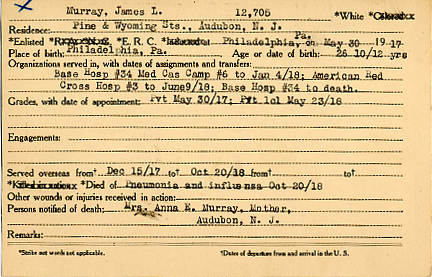 Murray, James L. 12,705 *White *Colored
Residence: Pine & Wyoming Sts., Audubon, N. J.
*Enlisted *R.A. *N.G. *E. R. C. *Inducted at Philadelphia, Pa. on May 30 1917
Place of birth: Philadelphia, Pa. Age or date of birth: 26 10/12 yrs
Organizations served in, with dates of assignments and transfers:
Base Hosp #34 Med Cas Camp #6 to Jan 4/18; American Red
Cross Hosp #3 to June9/18; Base Hosp #34 to death.
Grades, with date of appointment: Pvt May 30/17; Pvt 1cl May 23/18
Engagements:
Served overseas from† Dec 15/17 to† Oct 20/18 from† to†
*Died of Pneumonia and influenza Oct 20/18
Other wounds or injuries received in action:
Persons notified of death: Mrs. Anna E. Murray, Mother,
Audubon, N. J.
Remarks:
*Strike out words not applicable. †Dates of departure from and arrival in the U. S.